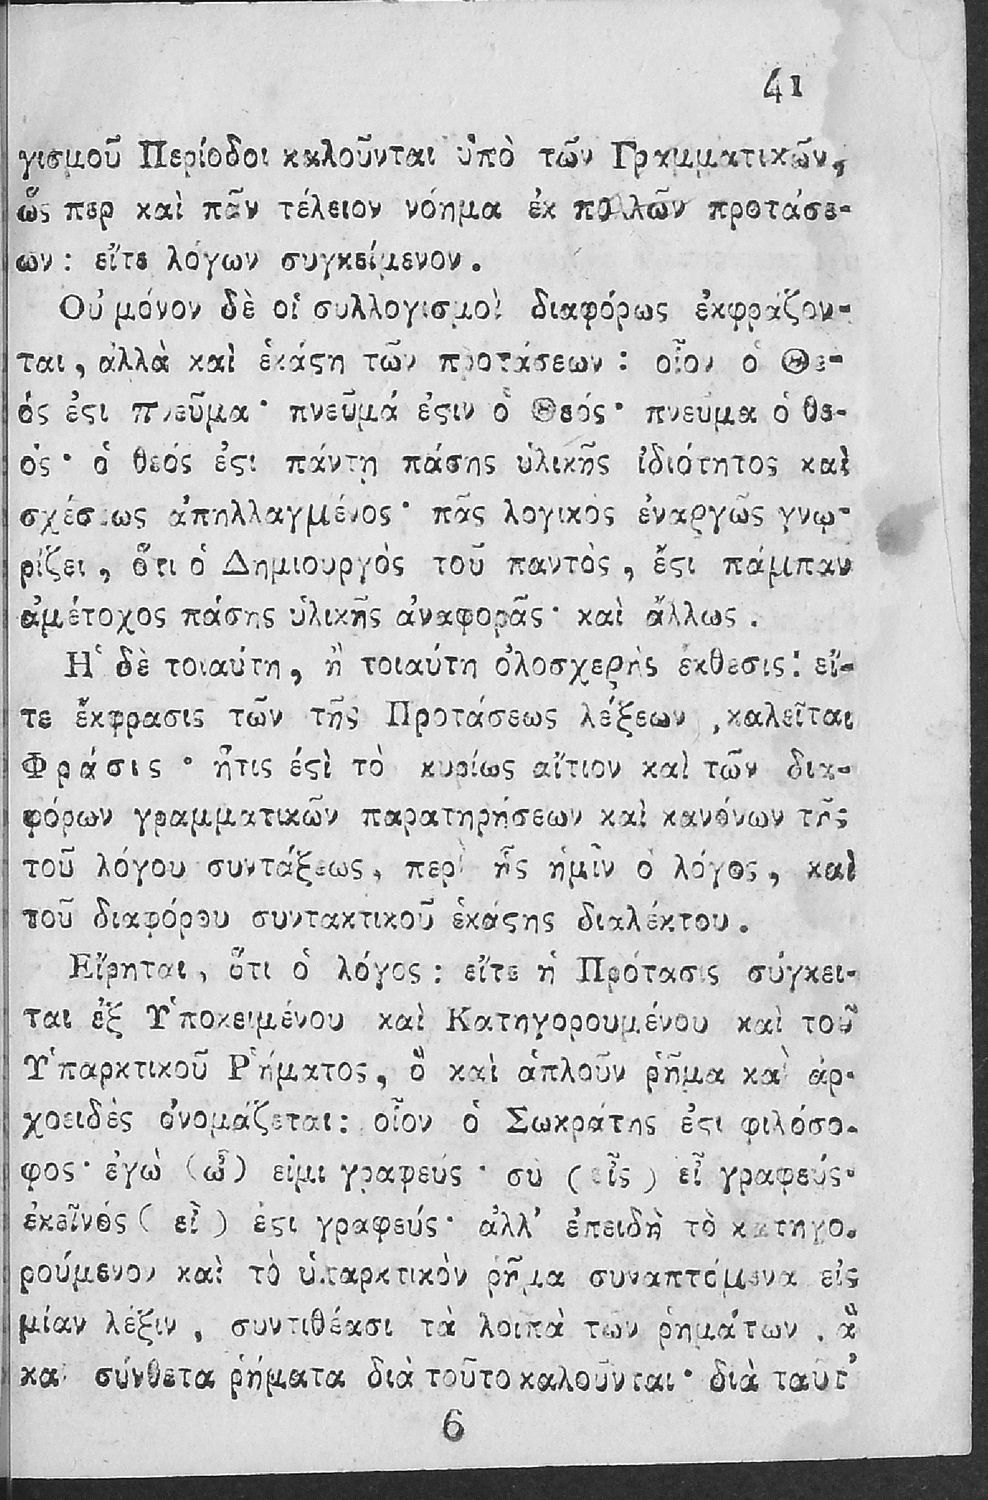 41
γισμοῦ Περίοδοι καλοῦνται ὑπὸ τῶν Γραμματικῶν,
ὥς περ καὶ πᾶν τέλειον νόημα ἐκ πολλῶν προτάσε-
ων : εἴτε λόγων συγκείμενον .
Οὐ μόνον δὲ οἱ συλλογισμοὶ διαφόρως ἐκφράζον-
ται , ἀλλὰ καὶ ἑκάϛη τῶν προτάσεων : οἷον ὁ Θε-
ός ἐϛι πνεῦμα · πνεῦμά ἐϛιν ὁ Θεός · πνεύμα ὁ θε-
ός · ὁ θεός ἐϛι πάντη πάσης ὑλικῆς ἰδιότητος καὶ
σχέσεως ἀπηλλαγμένος · πᾶς λογικὸς ἐναργῶς γνω-
ρίζει , ὅτι ὁ Δημιουργὸς τοῦ παντὸς , ἔϛι πάμπαν
ἀμέτοχος πάσης ὑλικῆς ἀναφορᾶς · καὶ ἄλλως .
Ἡ δὲ τοιαύτη, ἢ τοιαύτη ὁλοσχερὴς ἔκθεσις : εἴ-
τε ἔκφρασις τῶν τῆς Προτάσεως λέξεων , καλεῖται
Φράσις · ἥτις ἐϛὶ τὸ κυρίως αἴτιον καὶ τῶν δια-
φόρων γραμματικῶν παρατηρήσεων καὶ κανόνων τῆς
τοῦ λόγου συντάξεως, περὶ ἧς ἡμῖν ὁ λόγος , καὶ
τοῦ διαφόρου συντακτικοῦ ἑκάϛης διαλέκτου .
Εἴρηται , ὅτι ὁ λόγος : εἴτε ἡ Πρότασις σύγκει-
ται ἐξ Ὑποκειμένου καὶ Κατηγορουμένου καὶ τοῦ
Ὑπαρκτικοῦ Ῥήματος, ὃ καὶ ἁπλοῦν ῥῆμα καὶ ἀρ-
χοειδὲς ὀνομάζεται : οἷον ὁ Σωκράτης ἐϛι φιλόσο-
φος · ἐγὼ (ὦ) εἰμι γραφεύς · σὺ ( εἶς ) εἶ γραφεύς·
ἐκεῖνός ( εἶ ) ἐϛι γραφεύς · ἀλλ' ἐπειδὴ τὸ κατηγο-
ρούμενον καὶ τὸ ὑπαρκτικὸν ῥῆμα συναπτόμενα εἰς
μίαν λέξιν , συντιθέασι τὰ λοιπὰ τῶν ῥημάτων , ἃ
καὶ σύνθετα ῥήματα διὰ τοῦτο καλοῦνται · διὰ ταῦτ'
6